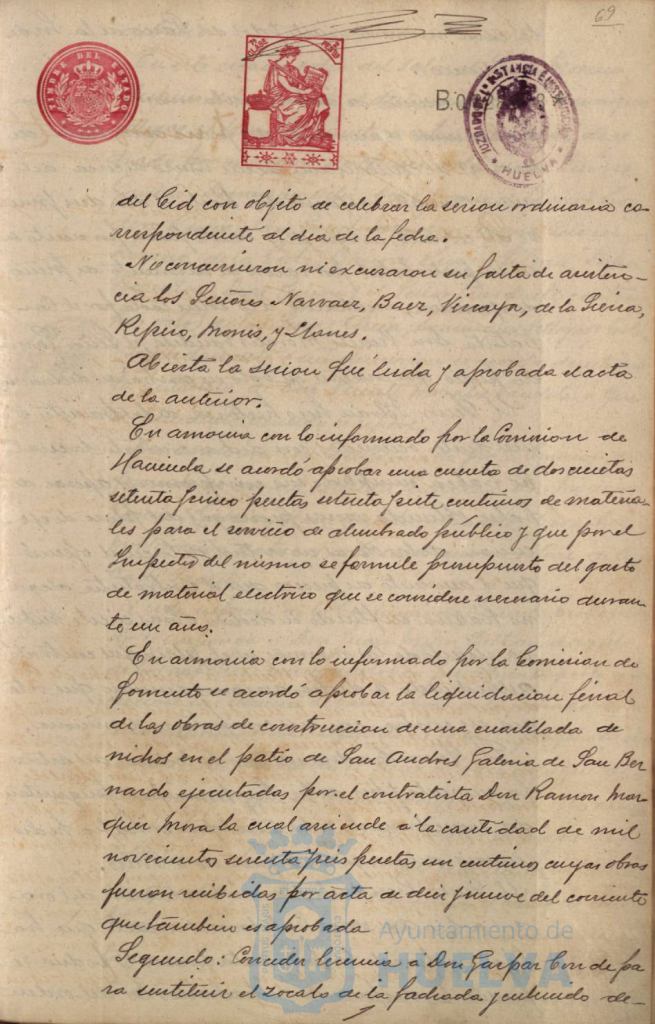 69
TIMBRE DEL ESTADO
7ª CLASE
JUZGADO DE 1ª INSTANCIA E INSTRUCCION
HUELVA
del Cid con objeto de celebrar la sesion ordinaria co-
rrespondiente al dia de la fecha.
No concurrieron ni excusaron su falta de asisten-
cia los Señores Narvaez, Baez, Vizcaya, de la Sierra,
Repiso, Monis, y Llanes.
Abierta la sesion fué leida y aprobada el acta
de la anterior.
En armonia con lo informado por la Comision de
Hacienda se acordó aprobar una cuenta de doscientas
setenta y cinco pesetas setenta y siete centimos de materia-
les para el servicio de alumbrado público y que por el
Inspector del mismo se formule presupuesto del gasto
de material electrico que se considere necesario duran-
te un año.
En armonia con lo informado por la Comision de
Fomento se acordó aprobar la liquidacion final
de las obras de construccion de una cuartelada de
nichos en el patio de San Andres Galeria de San Ber-
nardo ejecutadas por el contratista Don Ramon Mar-
quez Mora la cual asciende á la cantidad de mil
novecientos setenta y seis pesetas un centimo cuyas obras
fueron recibidas por acta de diez y nueve del corriente
que tambien es aprobada
Segundo: Conceder licencia a Don Gaspar Conde pa-
ra sustituir el zocalo de la fachada y
Ayuntamiento de
HUELVA